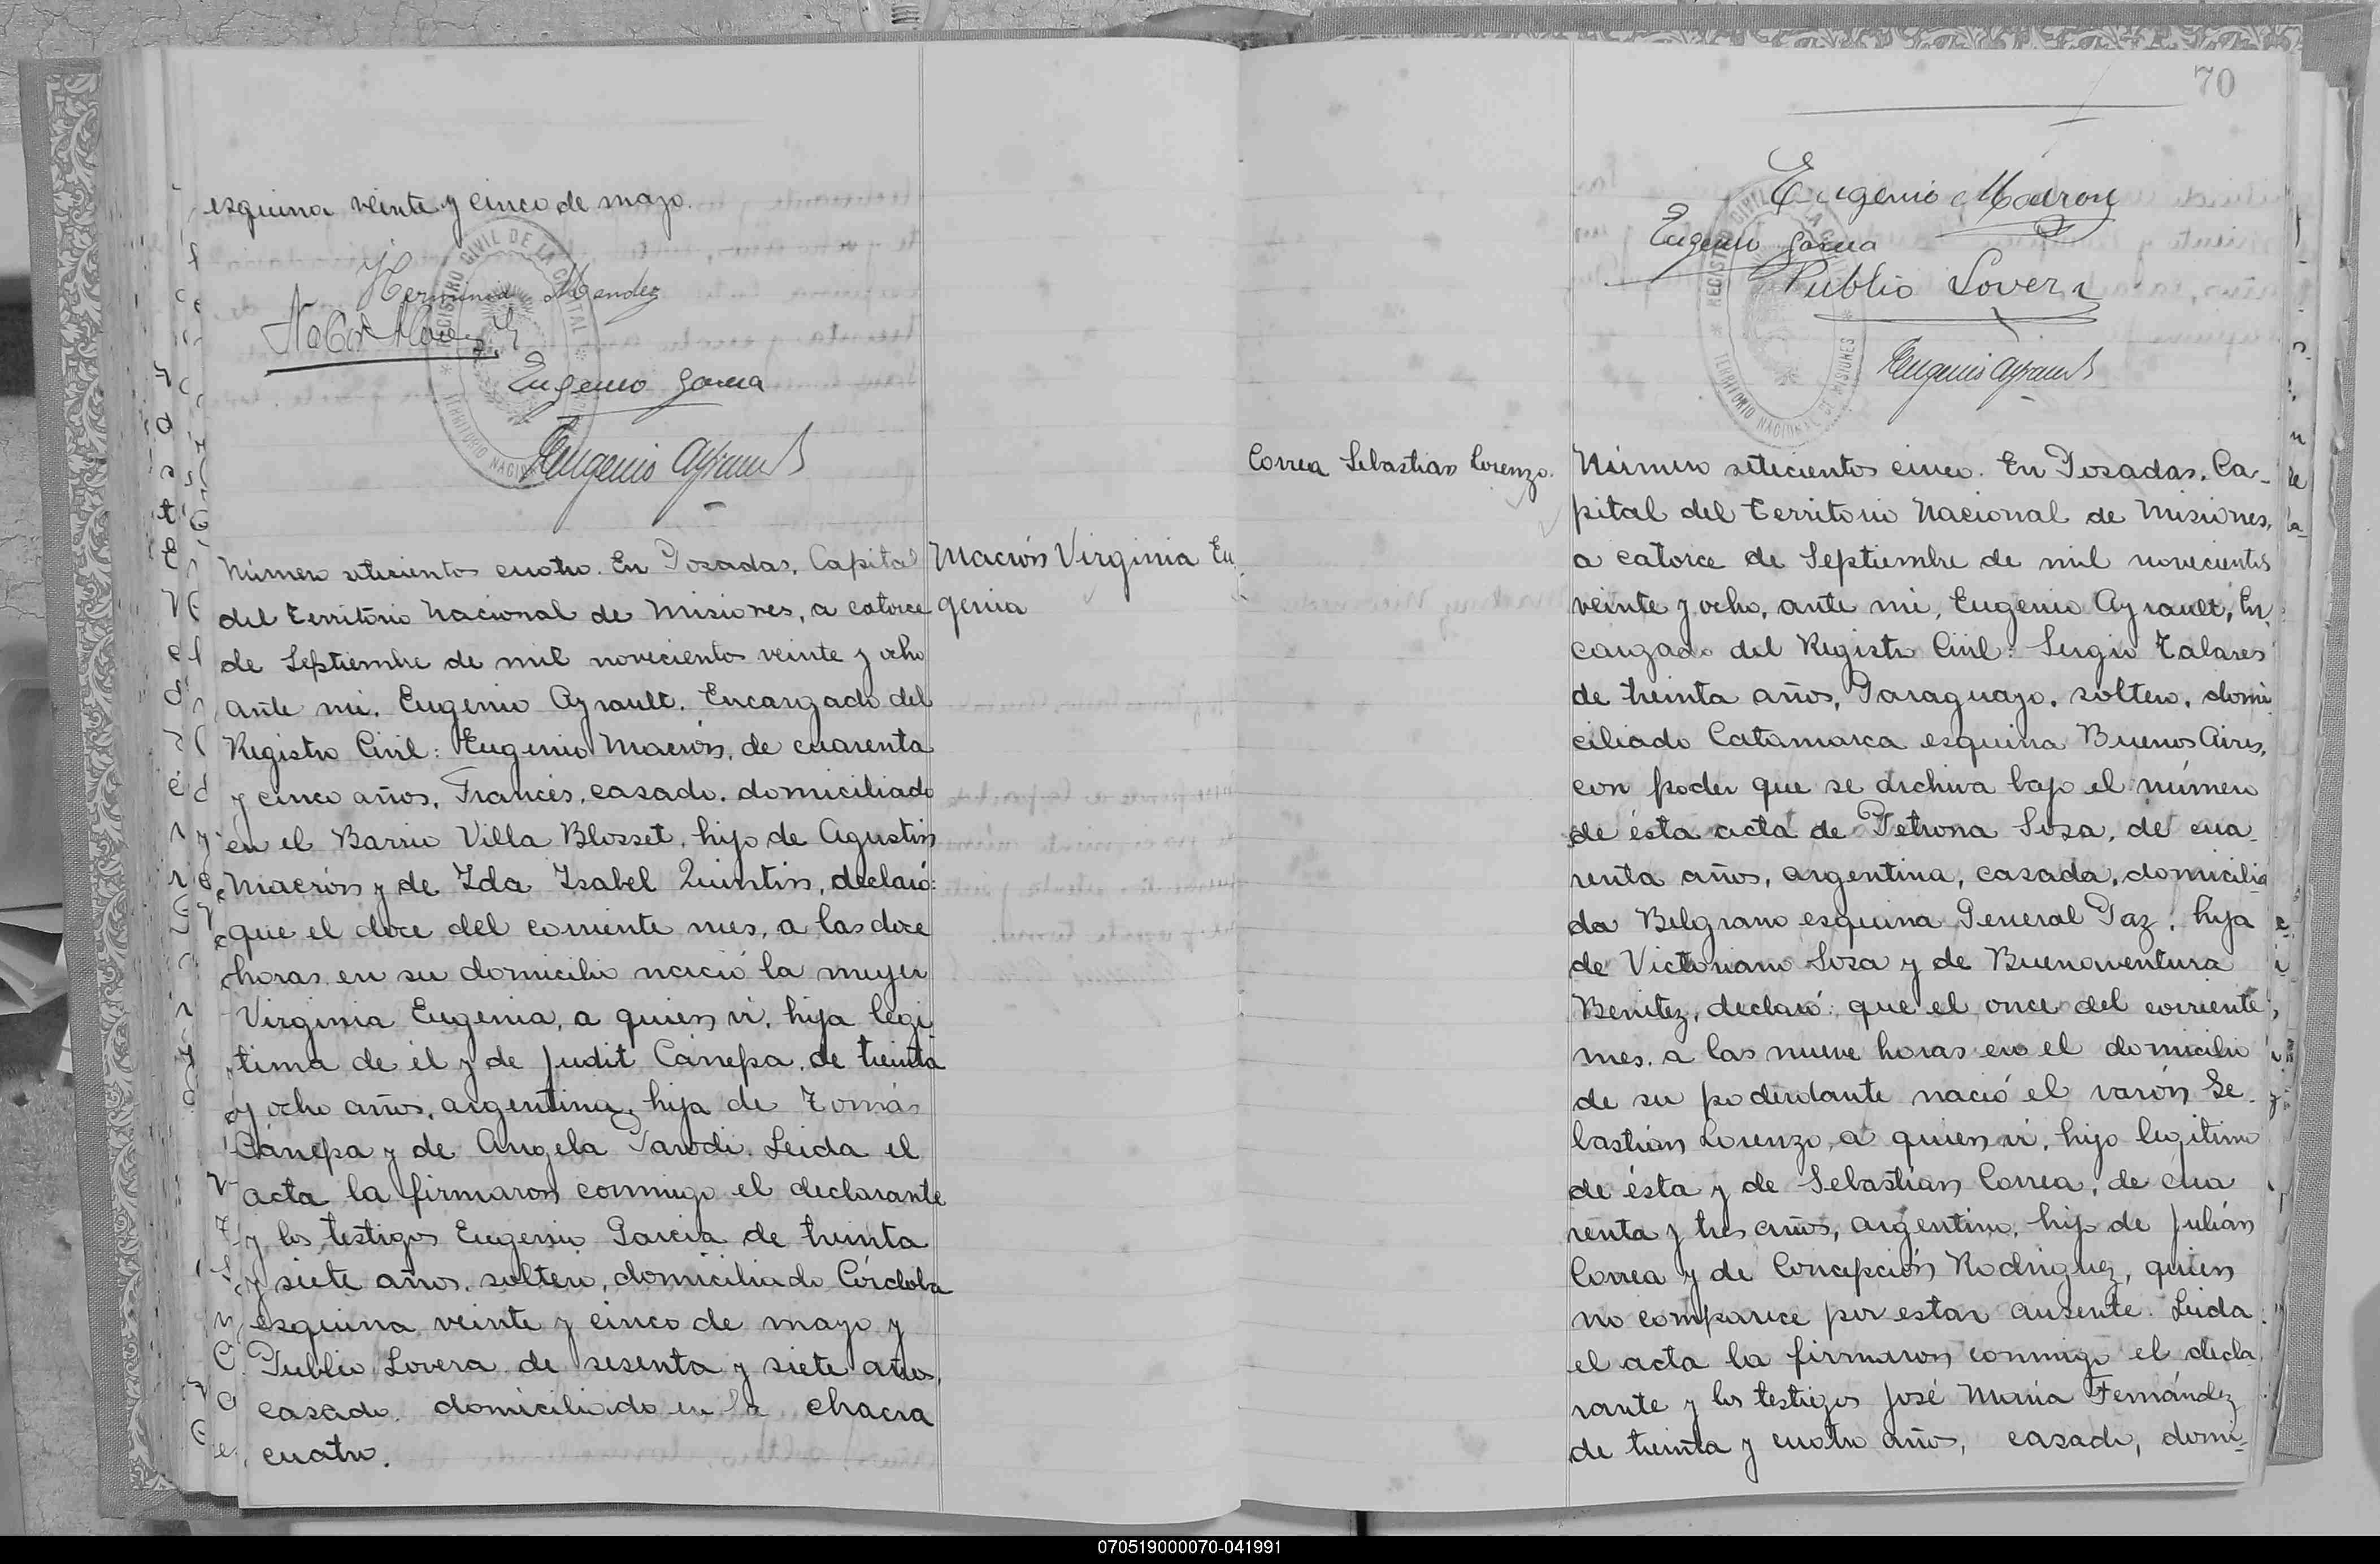 esquina veinte y cinco de mayo.
REGISTRO CIVIL DE LA CAPITAL
TERRITORIO NACIONAL
Herminia Mendez
Eugenio Garcia
Eugenio Ayrault
Número setecientos cuatro. En Posadas, Capital
del Territorio Nacional de Misiones, a catorce
de Septiembre de mil novecientos veinte y ocho
ante mi, Eugenio Ayrault, Encargado del
Registro Civil: Eugenio Macrón, de cuarenta
y cinco años, Francés, casado, domiciliado
en el Barrio Villa Blosset, hijo de Agustin
Macrón y de Ida Isabel Quintin, declaró:
que el doce del corriente mes, a las doce
horas en su domicilio nació la mujer
Virginia Eugenia, a quien vi, hija legi
tima de él y de Judit Cánepa, de treinta
y ocho años, argentina, hija de Tomás
Cánepa y de Angela Parodi. Leida el
acta la firmaron conmigo el declarante
y los testigos Eugenio Garcia de treinta
y siete años, soltero, domiciliado Córdoba
esquina veinte y cinco de mayo y
Publio Lovera de sesenta y siete años,
casado, domiciliado en la chacra
cuatro.
Macrón Virginia Eu
genia
70
Eugenio Macron
Eugenio Garcia
Publio Lovera
REGISTRO CIVIL DE LA CAPITAL
TERRITORIO NACIONAL DE MISIONES
Eugenio Ayrault
Correa Sebastian Lorenzo.
Número setecientos cinco. En Posadas, Ca-
pital del Territorio Nacional de Misiones,
a catorce de Septiembre de mil novecientos
veinte y ocho, ante mi, Eugenio Ayrault, En
cargado del Registro Civil: Sergio Talares
de treinta años, Paraguayo, soltero, domi
ciliado Catamarca esquina Buenos Aires,
con poder que se archiva bajo el número
de ésta acta de Petrona Sosa, de cua-
renta años, argentina, casada, domicilia
da Belgrano esquina General Paz, hija
de Victoriano Sosa y de Buenaventura
Benitez, declaró: que el once del corriente
mes, a las nueve horas en el domicilio
de su poderdante nació el varón Se-
bastián Lorenzo, a quien vi, hijo legitimo
de ésta y de Sebastián Correa, de cua
renta y tres años, argentino, hijo de Julián
Correa y de Concepción Rodriguez, quien
no comparece por estar ausente. Leida
el acta la firmaron conmigo el decla
rante y los testigos José Maria Fernández
de treinta y cuatro años, casado, domi-
070519000070-041991